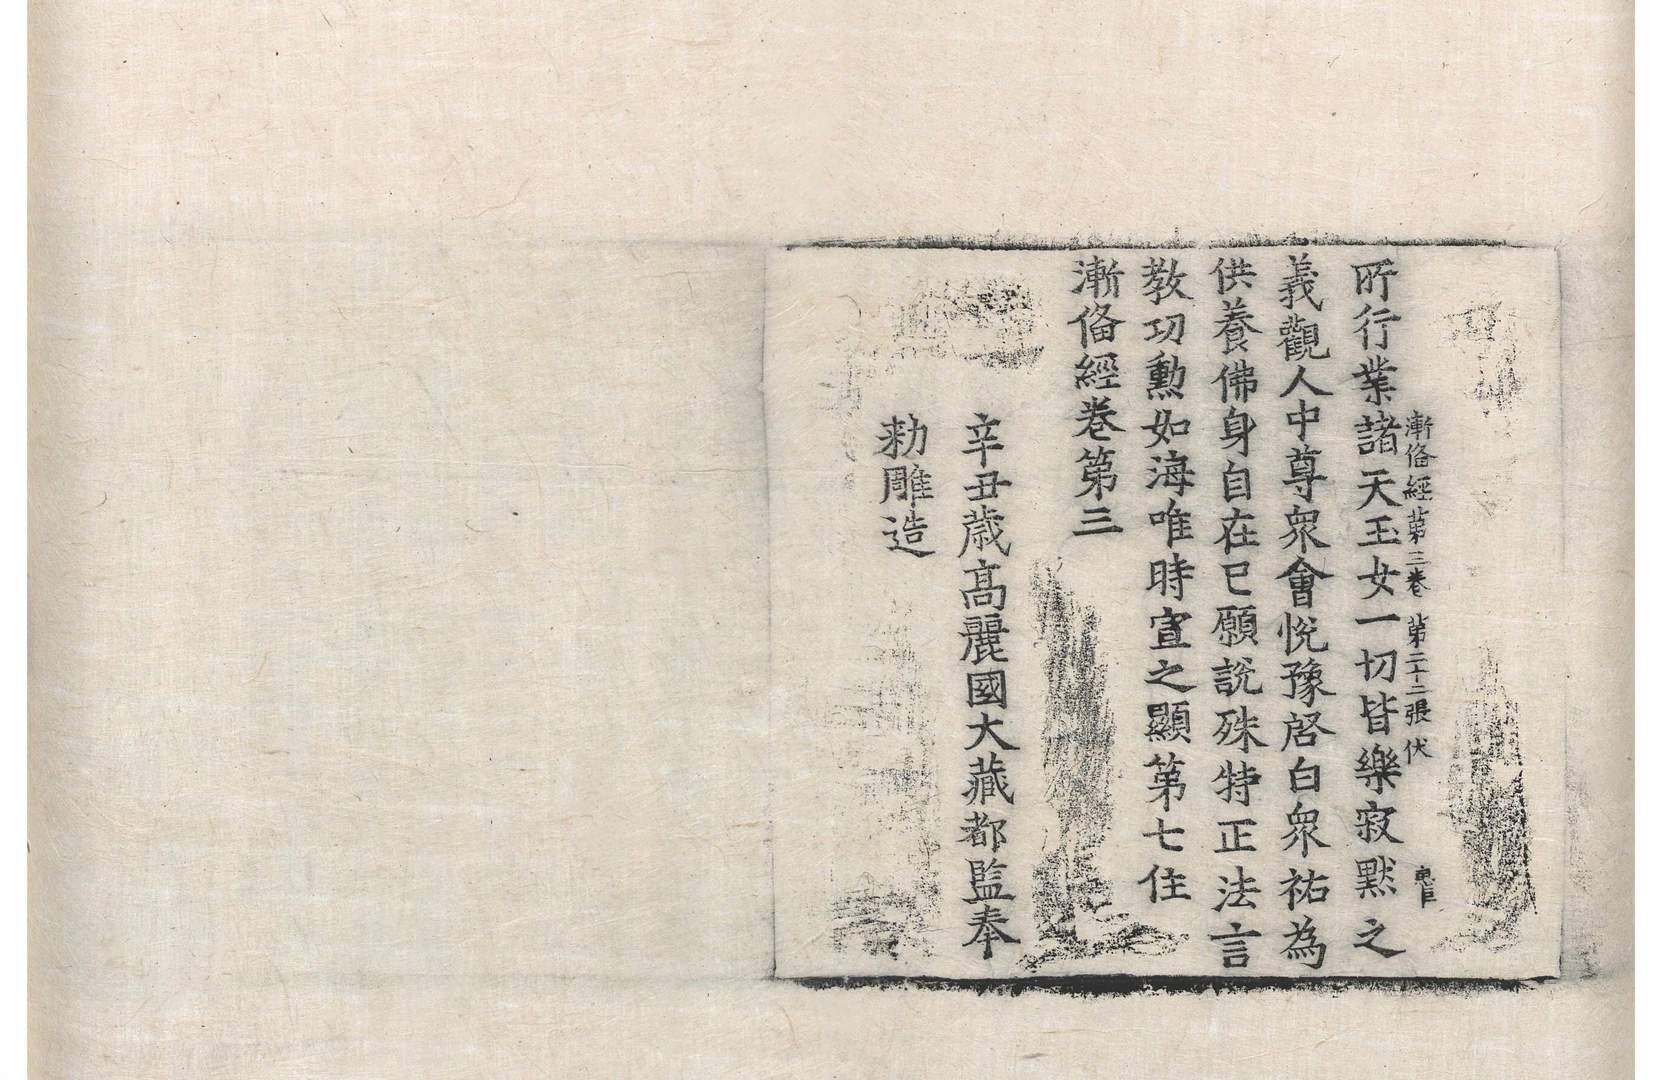 漸偹經第三卷 第二十二張 伏
所行業諸天玉女一切皆樂寂黙之
義觀人中尊衆會悅豫啓白衆祐為
供養佛身自在已願說殊特正法言
教功勳如海唯時宣之顯第七住
漸偹經卷第三
辛丑歳高麗國大藏都監奉
勅雕造